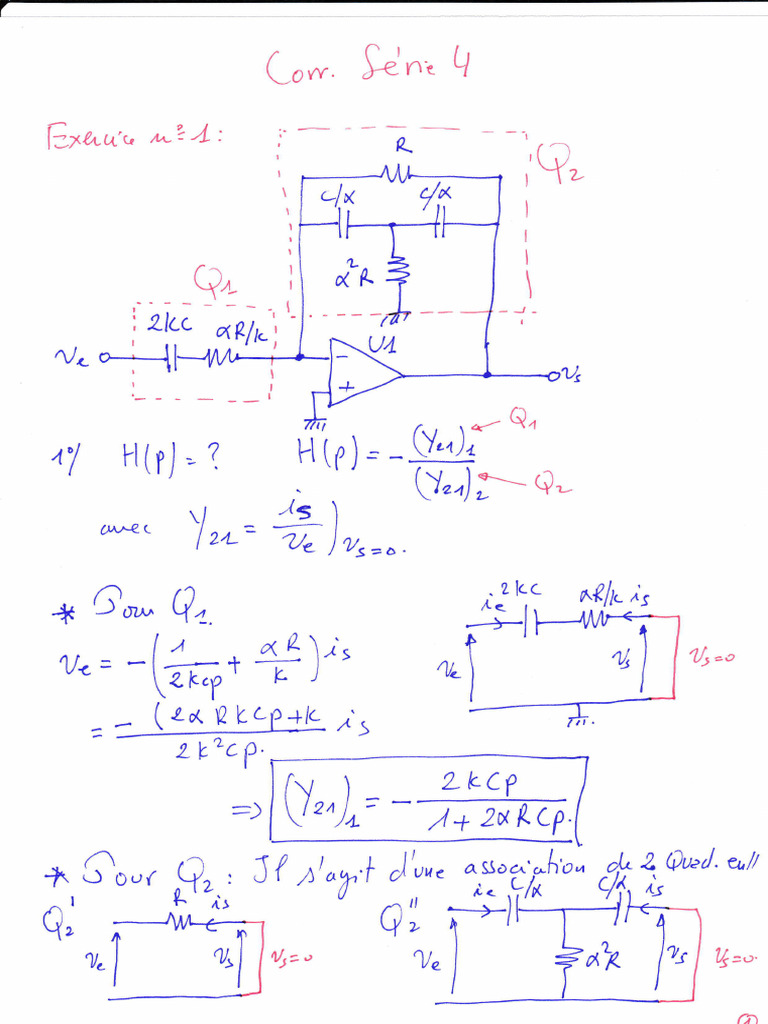 Corr. Série 4
Exercice n°=1:
Q2
R
C/α C/α
α²R
Q1
2KC αR/K
U1
Ve
-
+
Vs
1°/ H(p) = ? H(p) = - (Y21)1 / (Y21)2
Q1
Q2
avec Y21 = is/Ve )Vs=0.
* Pour Q1.
ie 2KC αR/K is
Ve Vs Vs=0
Ve = -(1/2KCp + αR/K) is
= -(2αRKCp+K / 2K²Cp. is
=> (Y21)1 = - 2KCp / 1+2αRCp.
* Pour Q2 : Il s'agit d'une association de 2 Quad. en //
Q2' R is
Ve Vs Vs=0
Q2'' ie C/α C/α is
Ve α²R Vs Vs=0.
①